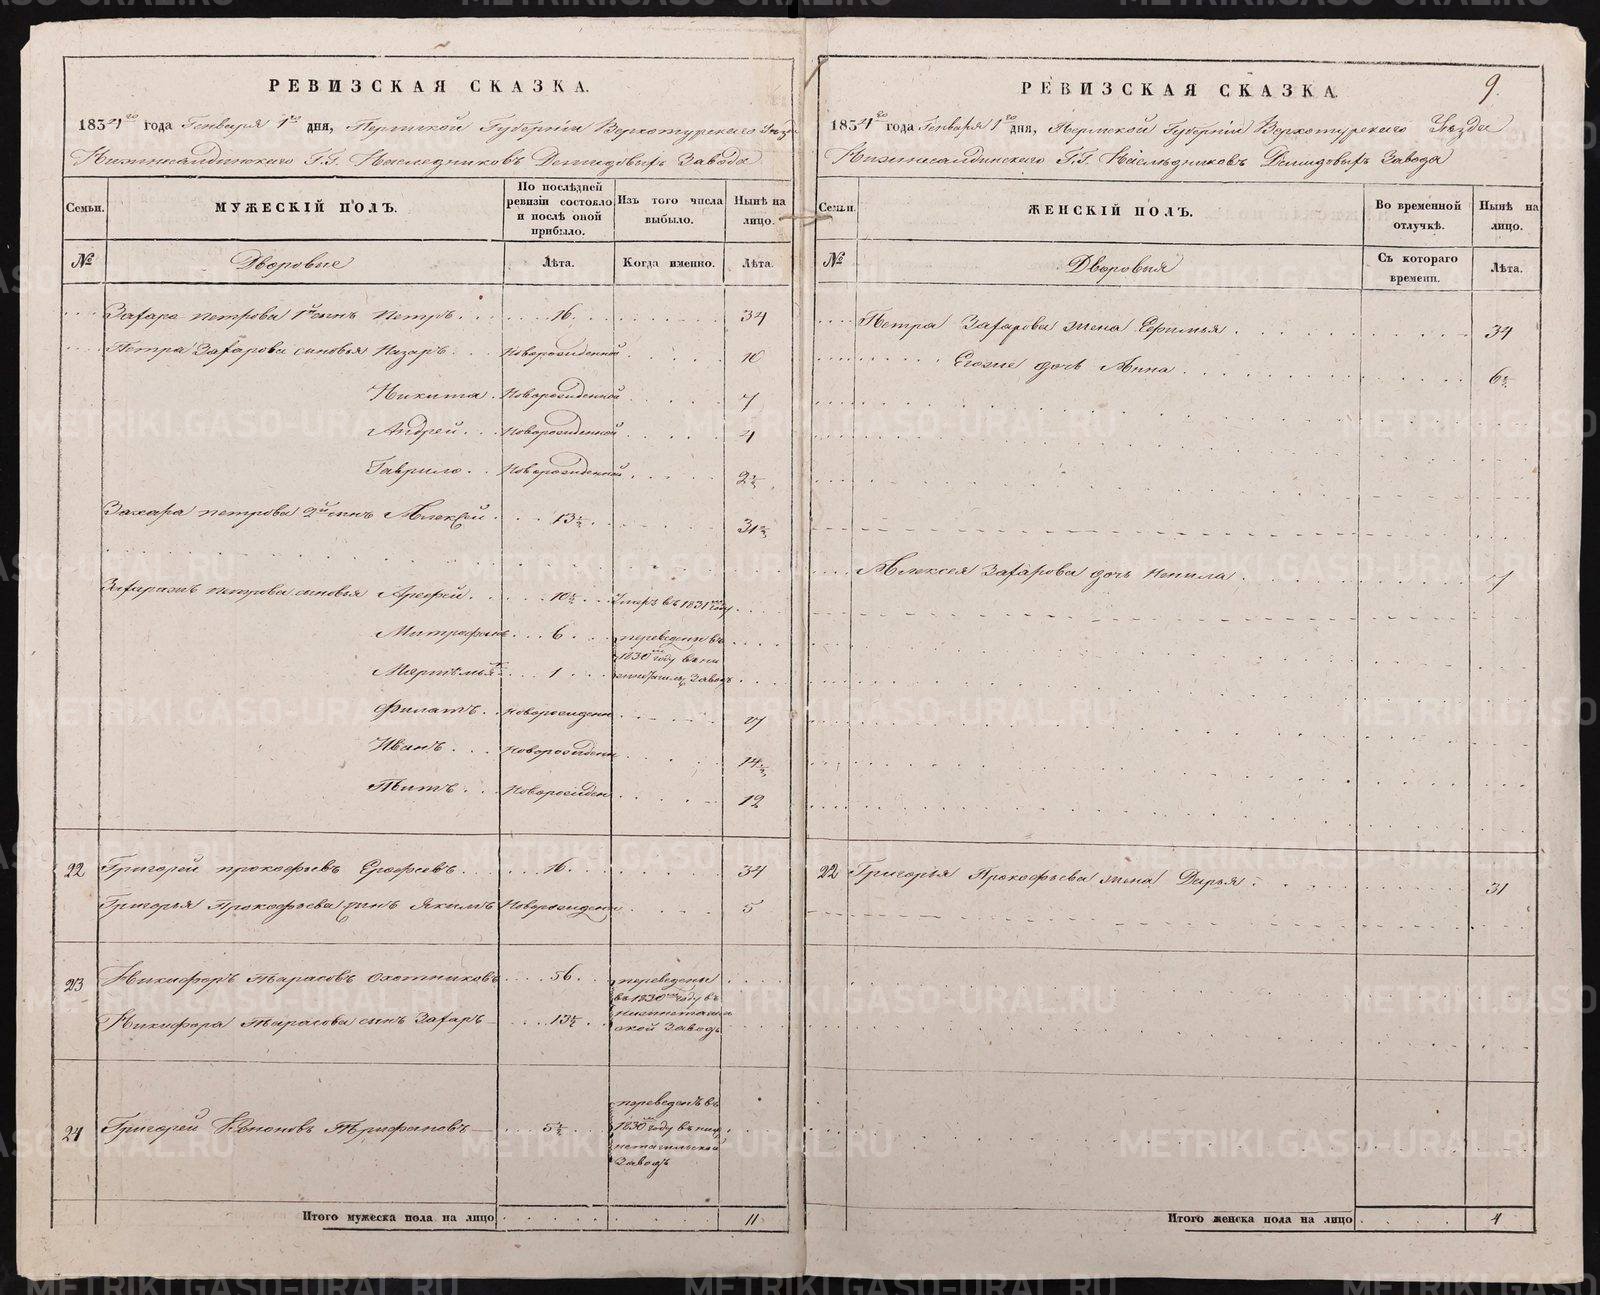 РЕВИЗСКАЯ СКАЗКА.
1834го года Генваря 1го дня, Пермской Губернiи Верхотурскаго Уѣзда
Нижнесалдинскаго Г.Г. Наследниковъ Демидовыхъ Завода
Семьи.
МУЖЕСКIЙ ПОЛЪ.
По послѣдней ревизiи состояло и послѣ оной прибыло.
Изъ того числа выбыло.
Нынѣ на лицо.
№
Дворовые
Лѣта.
Когда именно.
Лѣта.
Захара петрова 1й сынъ Петръ 16 34
Петра Захарова сыновья Назаръ Новорожденной 10
Никита Новорожденной 7
Андрей Новорожденной 4
Гаврило Новорожденной 2½
Захара петрова 2й сынъ Алексѣй 13½ 31½
петрова сыновья Арефей 10½ Умеръ въ 1831мъ году
Митрофанъ 6 переведены въ
1830мъ году въ ни
1 Заводъ
Филатъ Новорожденн 17
Иванъ Новорожденн 14½
Титъ Новорожден 12
22 Григорей прокофьевъ Ерофѣевъ 16 34
Григорья Прокофьева сынъ Якимъ Новорожденн 5
23 Никифоръ Тарасовъ Охотниковъ 56 переведены
въ 1830мъ году въ
Никифора Тарасова сынъ Захаръ 13½ нижнетагил
ской Заводъ
переведенъ въ
24 Григорей Кононовъ Трифановъ 5½ 1830мъ году въ ниж
нетагильской
Заводъ
Итого мужеска пола на лицо 11
9.
РЕВИЗСКАЯ СКАЗКА.
1834го года Генваря 1го дня, Пермской Губернiи Верхотурскаго Уѣзда
Нижнесалдинскаго Г.Г. Наслѣдниковъ Демидовыхъ Завода
Семьи.
ЖЕНСКIЙ ПОЛЪ.
Во временной отлучкѣ.
Нынѣ на лицо.
№
Дворовыя
Съ котораго времени.
Лѣта.
Петра Захарова жена Ефимья 34
Егоже дочь Анна 6½
Алексея Захарова дочь Ненила 7
22 Григорья Прокофьева жена Дарья 31
Итого женска пола на лицо 4
METRIKI.GASO-URAL.RU